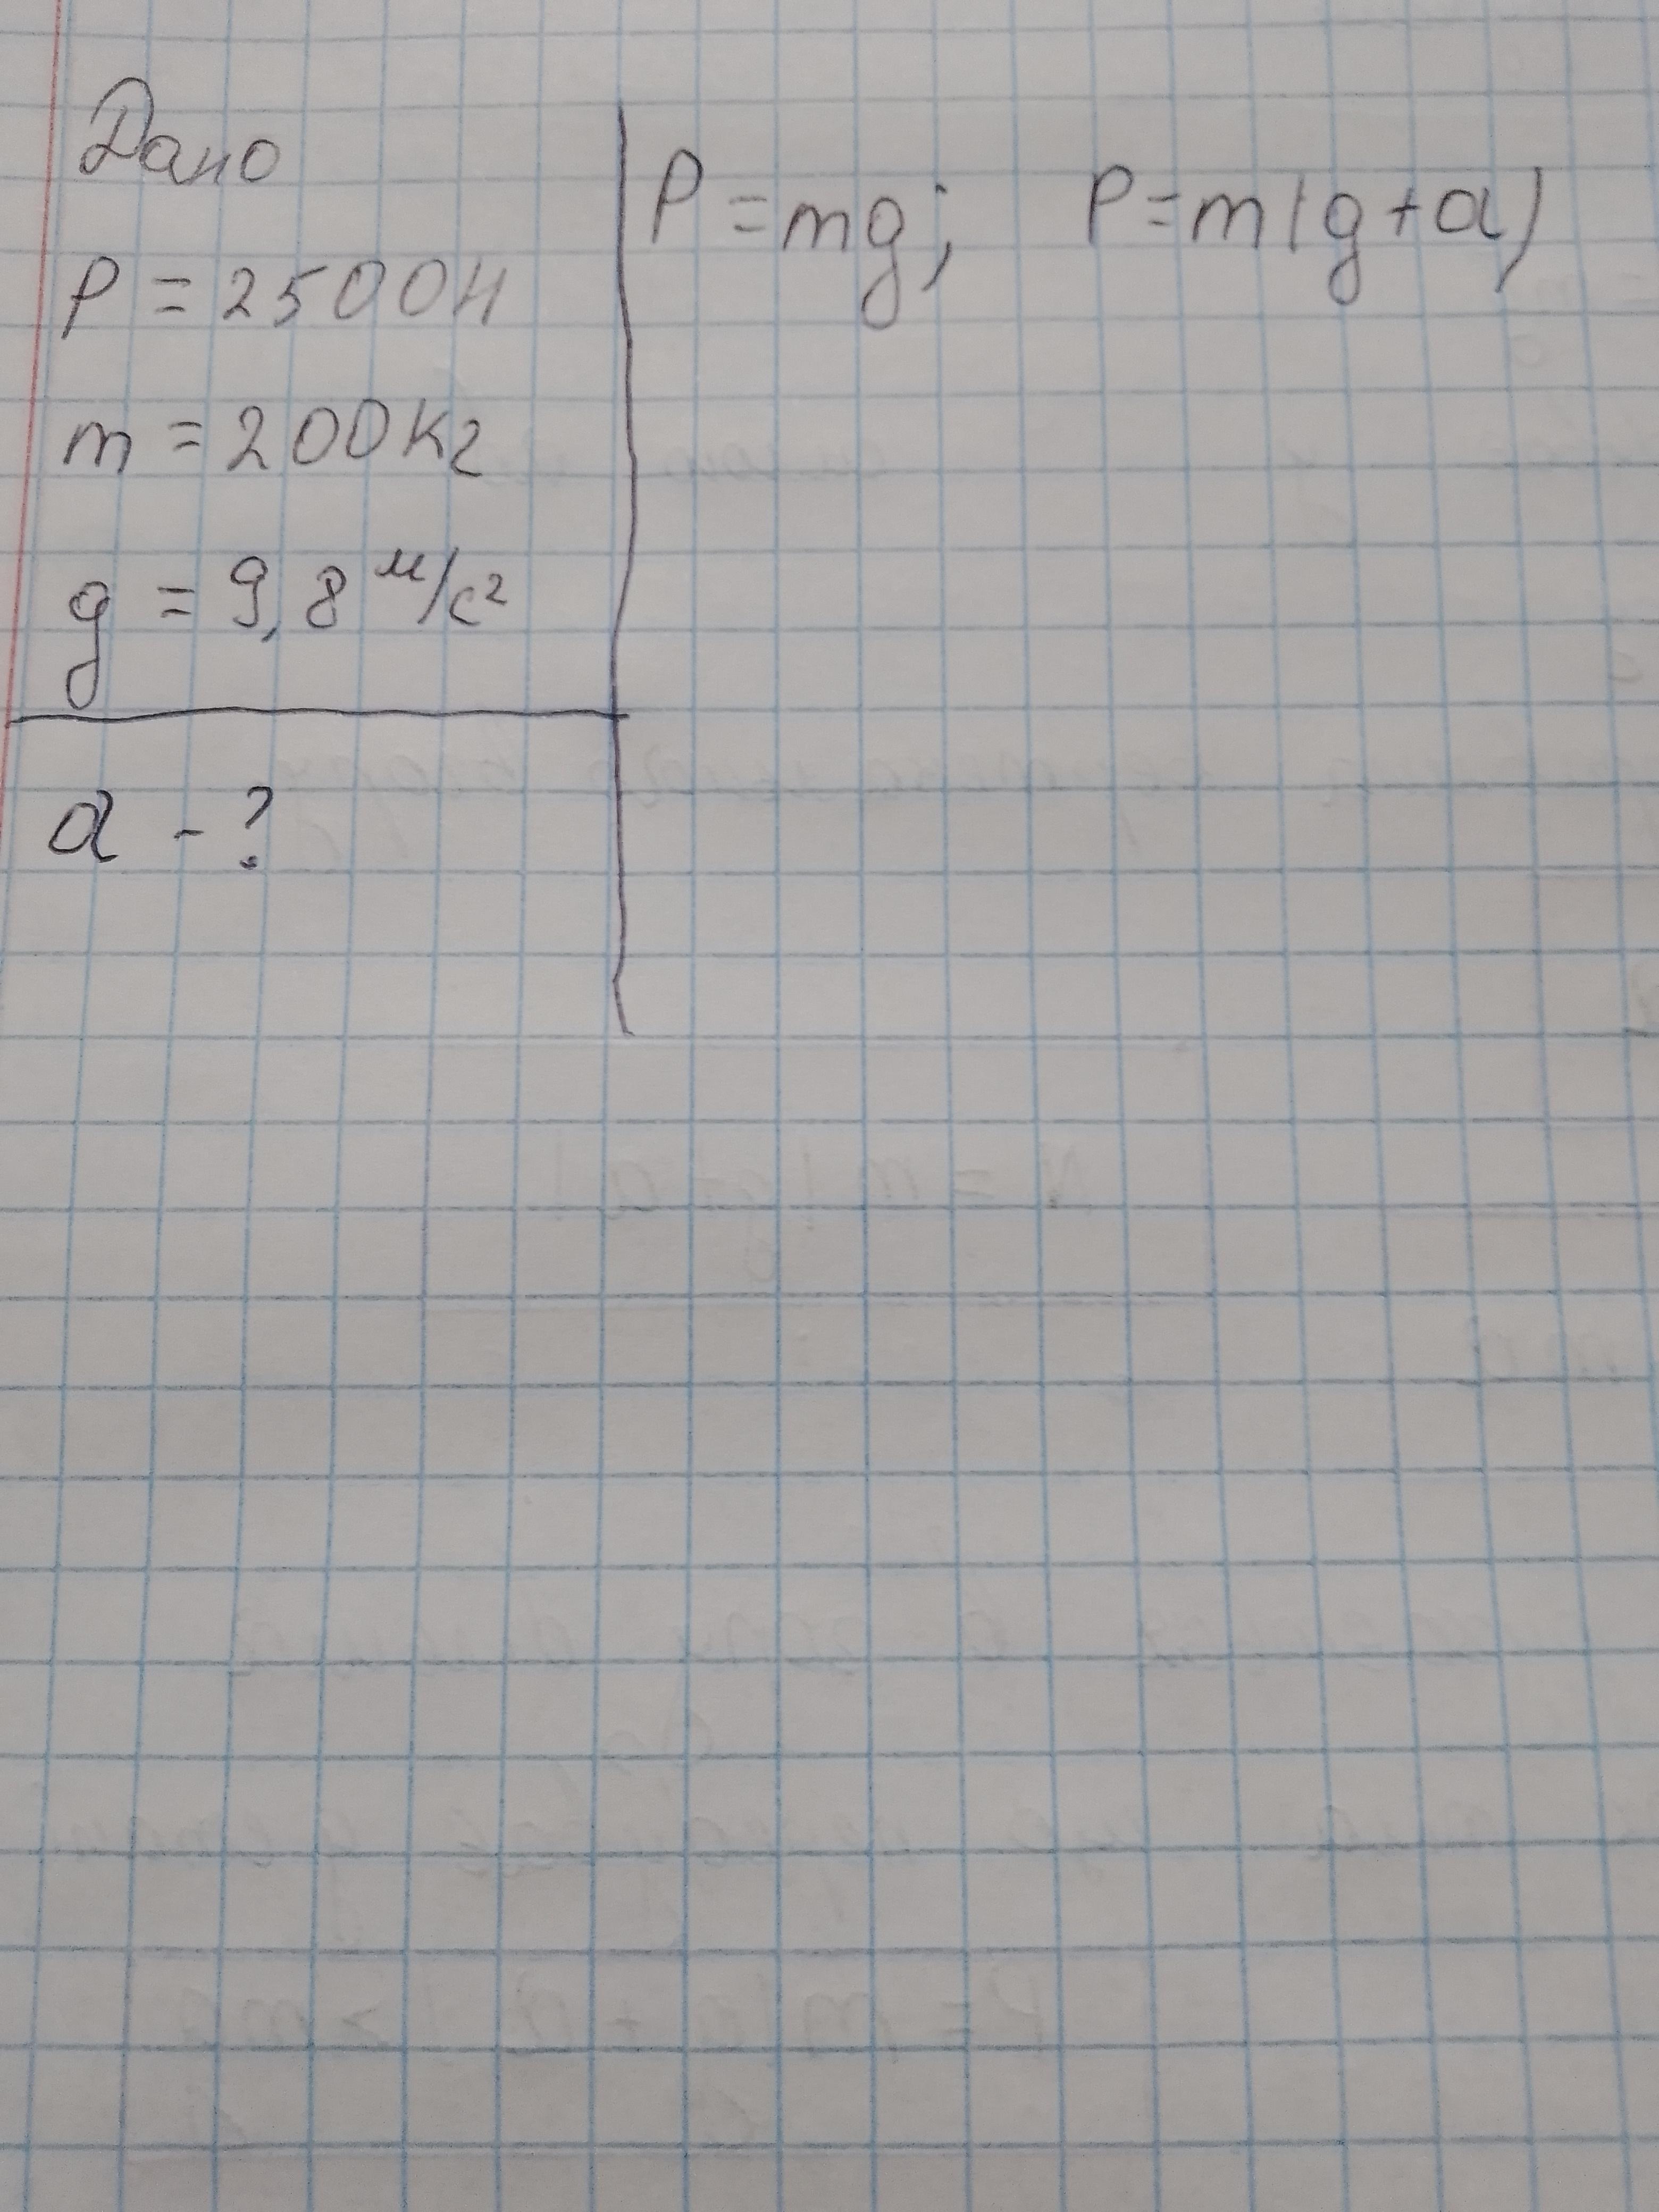 Дано
P = 2500Н
m = 200кг
g = 9,8 м/с²
a - ?
P = mg; P = m(g + a)